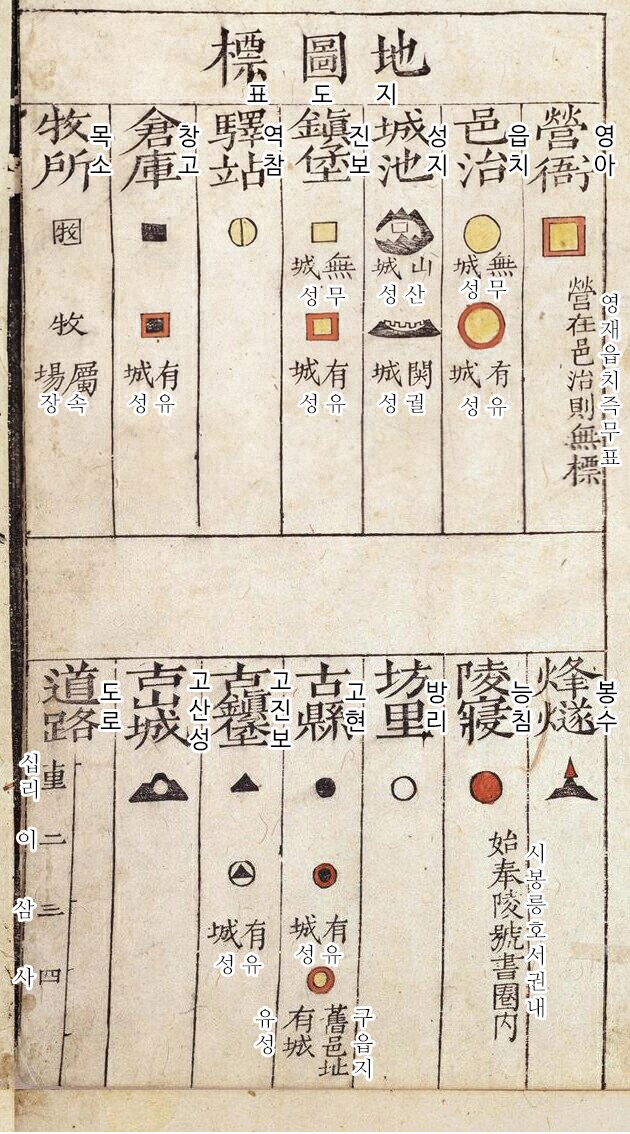 地圖標
지도표
營衙
영아
營在邑治則無標
영재읍치즉무표
邑治
읍치
無城
무성
有城
유성
城池
성지
山城
산성
関城
궐성
鎭堡
진보
無城
무성
有城
유성
驛站
역참
倉庫
창고
有城
유성
牧所
목소
牧
牧
屬場
속장
烽燧
봉수
陵寢
능침
始奉陵號書圈內
시봉릉호서권내
坊里
방리
古縣
고현
有城
유성
舊邑址
구읍지
有城
유성
古鎭堡
고진보
有城
유성
古山城
고산성
道路
도로
十里
십리
二
이
三
삼
四
사